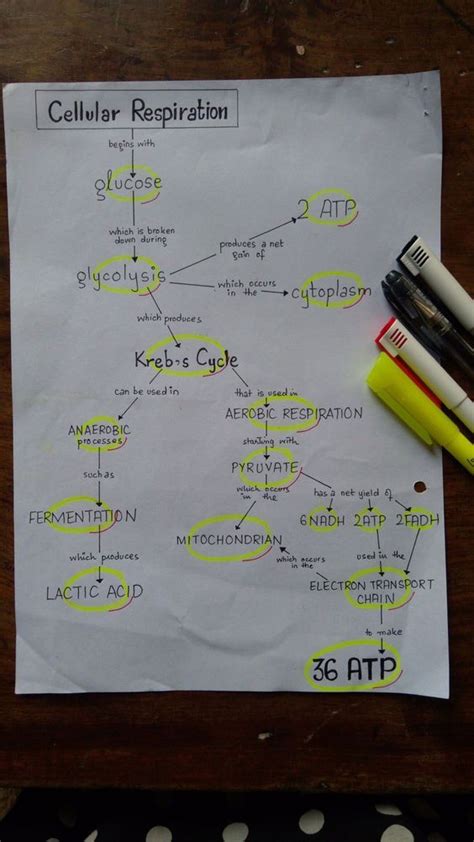 Cellular Respiration
begins with
glucose
2 ATP
which is broken
down during
produces a net
gain of
glycolysis
which occurs
in the
cytoplasm
which produces
Kreb's Cycle
can be used in
that is used in
AEROBIC RESPIRATION
ANAEROBIC
processes
starting with
PYRUVATE
such as
which occurs
in the
has a net yield of
FERMENTATION
6NADH 2ATP 2FADH
MITOCHONDRIAN
which produces
which occurs
in the
used in the
LACTIC ACID
ELECTRON TRANSPORT
CHAIN
to make
36 ATP